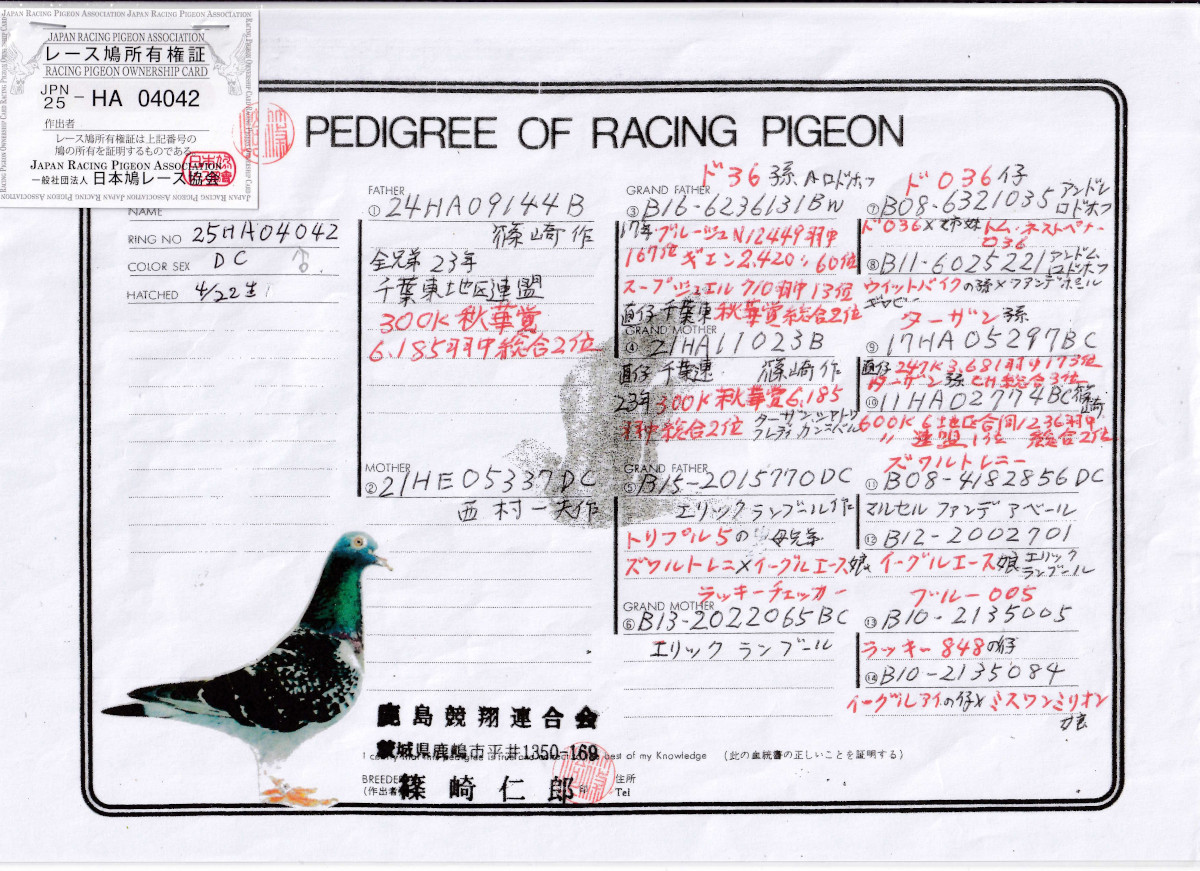 JAPAN RACING PIGEON ASSOCIATION JAPAN RACING PIGEON ASSOCIATION
JAPAN RACING PIGEON ASSOCIATION
レース鳩所有権証
RACING PIGEON OWNERSHIP CARD
JPN
25 - HA 04042
作出者
レース鳩所有権証は上記番号の
鳩の所有を証明するものである。
JAPAN RACING PIGEON ASSOCIATION
一般社団法人 日本鳩レース協会
PEDIGREE OF RACING PIGEON
NAME
RING NO 25HA04042
COLOR SEX DC ♂
HATCHED 4/22生
FATHER
① 24HA09144B
篠崎作
全兄弟 23年
千葉東地区連盟
300K秋華賞
6.185羽中総合2位
MOTHER
② 21HE05337DC
西村一夫作
ド36孫 Aロドホフ
GRAND FATHER
③ B16-6236131BW
17年ブルージュN12449羽中
167位 ギエン2,420〃60位
スープジュエル710羽中13位
直仔千葉東秋華賞総合2位
GRAND MOTHER
④ 21HA11023B
直仔 千葉連 篠崎作
23年300K秋華賞6,185
羽中総合2位
GRAND FATHER
⑤ B15-2015770DC
エリックランブール作
トリプル5の 母兄弟
ズワルトレニ×イーグルエース娘
ラッキーチェッカー
GRAND MOTHER
⑥ B13-2022065BC
エリック ランブール
ド036仔
⑦ B08-6321035 アンドレ
ロドホフ
ド036×姉妹トム・ネストペナー
036
⑧ B11-6025221 アンドレ
ロドホフ
ウイットバイクの孫×ファンデボール
ターザン孫
⑨ 17HA05297BC
直仔247K3,681羽中173位
ターザン孫 CH総合3位
⑩ 11HA02774BC 篠崎
600K6地区合同1236羽中
〃 連盟1位 総合2位
ズワルトレニー
⑪ B08-4182856DC
マルセル ファンデ アベール
⑫ B12-2002701
イーグルエース娘 エリック
ランブール
ブルー005
⑬ B10-2135005
ラッキー848の仔
⑭ B10-2135084
イーグルアイの仔×ミスワンミリオン
娘
鹿島競翔連合会
茨城県鹿嶋市平井1350-169
I certify that this pedigree is true and correct to the best of my Knowledge (此の血統書の正しいことを証明する)
BREEDER
(作出者) 篠崎仁郎 印
住所
Tel